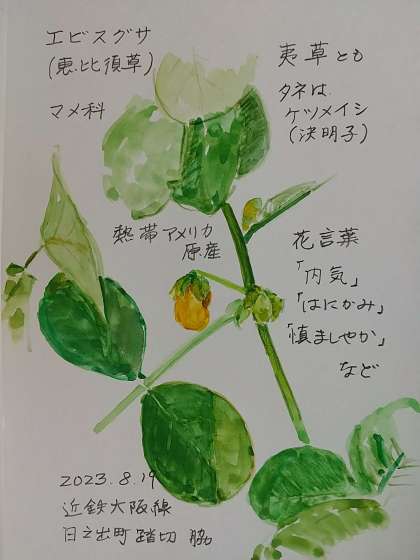 エビスグサ
(恵比須草)
マメ科
夷草とも
タネは
ケツメイシ
(決明子)
熱帯アメリカ
原産
花言葉
「内気」
「はにかみ」
「慎ましやか」
など
2023.8.19
近鉄大阪線
日之出町踏切 脇